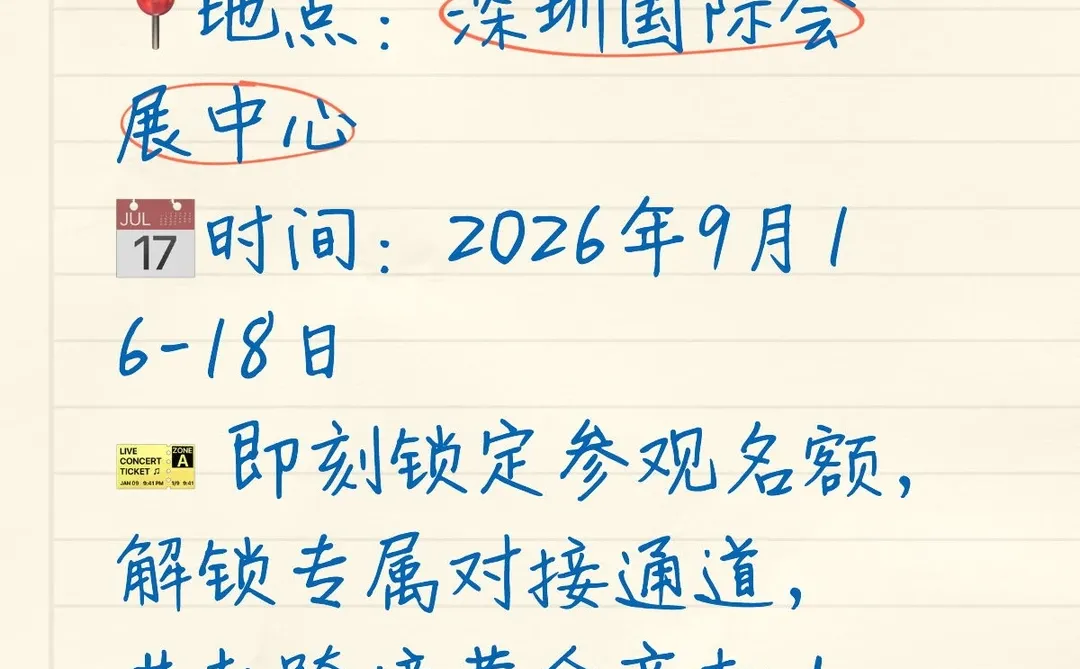 📍地点：深圳国际会
展中心
JUL
17
时间：2026年9月1
6-18日
LIVE CONCERT TICKET ZONE A
JAN 09 9:41PM 1/9 9:41
即刻锁定参观名额，
解锁专属对接通道，